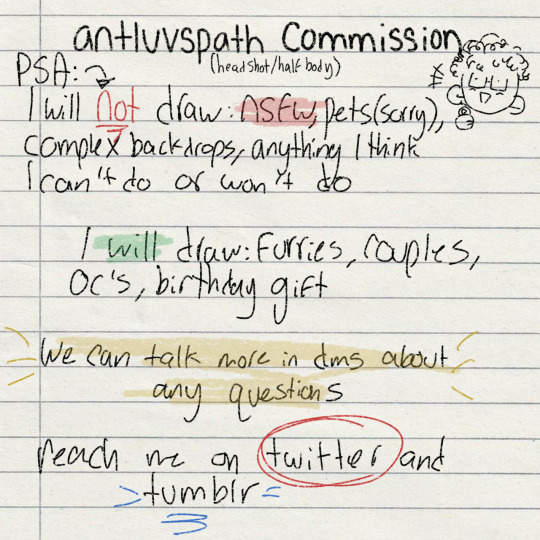 antluvspath Commission
(headshot/half body)
PSA:
I will not draw: NSFW, pets(sorry),
complex backdrops, anything I think
I can't do or won't do
I will draw: Furries, couples,
OC's, birthday gift
We can talk more in dms about
any questions
reach me on twitter and
tumblr